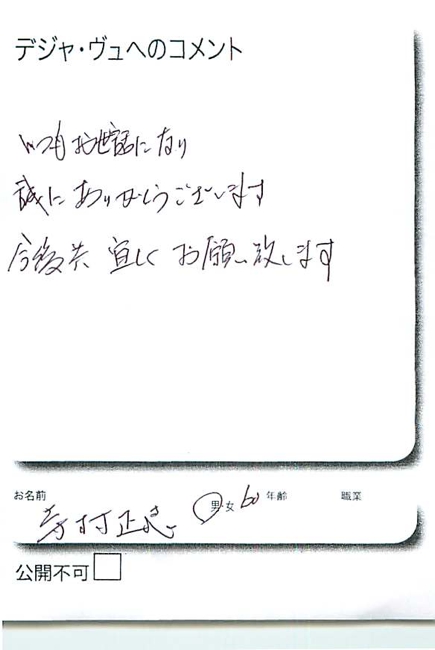 デジャ・ヴュへのコメント
いつもお世話になり
誠にありがとうございます
今後共 宜しく お願い致します
お名前
寺村正
男・女 60 年齢 職業
公開不可